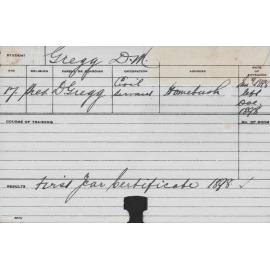 STUDENT Gregg D. M.
AGE RELIGION PARENT OR GUARDIAN OCCUPATION ADDRESS DATE OF
17 Pres D Gregg Civil Servant Homebush
Dec 1898
COURSE OF TRAINING
RESULTS First Year Certificate 1898 ✓